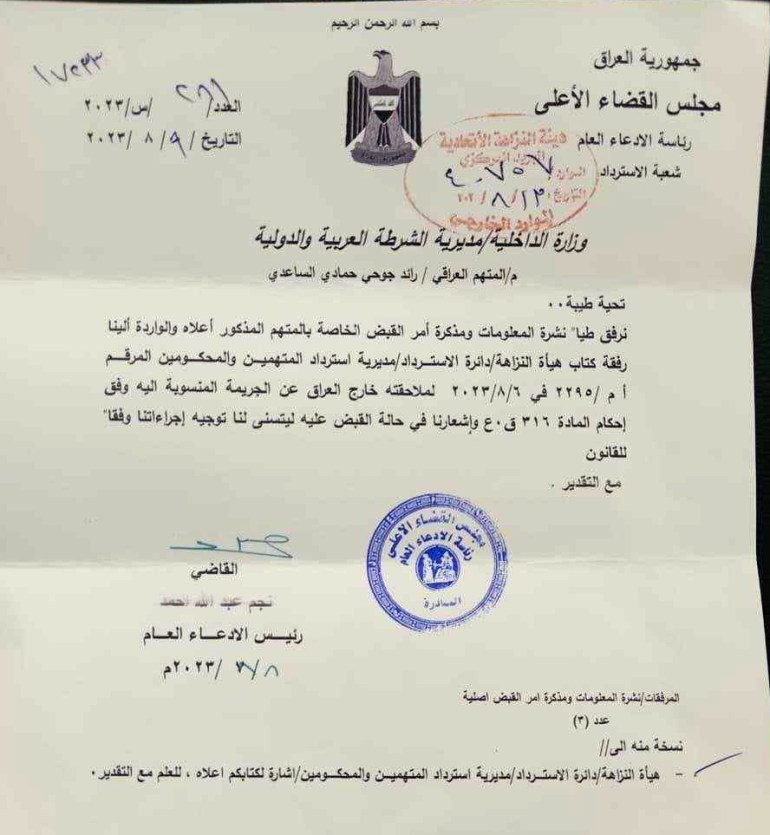 بسم الله الرحمن الرحيم
جمهورية العراق
مجلس القضاء الأعلى
رئاسة الادعاء العام
شعبة الاسترداد
١٧٥٣٣
العدد/ ٢٨١ /س/٢٠٢٣
التاريخ / ٩/ ٨ /٢٠٢٣
هيئة النزاهة الأتحادية
البريد المركزي
الوارد ٤٠٧٥٧
التاريخ
الوارد الخارجي
وزارة الداخلية/مديرية الشرطة العربية والدولية
م/المتهم العراقي / رائد جوحي حمادي الساعدي
تحية طيبة ٠٠
نرفق طيا" نشرة المعلومات ومذكرة أمر القبض الخاصة بالمتهم المذكور أعلاه والواردة ألينا
رفقة كتاب هيأة النزاهة/دائرة الاسترداد/مديرية استرداد المتهمين والمحكومين المرقم
أ م /٢٢٩٥ في ٢٠٢٣/٨/٦ لملاحقته خارج العراق عن الجريمة المنسوبة اليه وفق
إحكام المادة ٣١٦ ق٠ع وإشعارنا في حالة القبض عليه ليتسنى لنا توجيه إجراءاتنا وفقا"
للقانون
مع التقدير .
مجلس القضاء الأعلى
رئاسة الادعاء العام
الصادرة
القاضي
نجم عبد الله احمد
رئيس الادعاء العام
٨/ /٢٠٢٣م
المرفقات/نشرة المعلومات ومذكرة امر القبض اصلية
عدد (٣)
نسخة منه الى//
- هيأة النزاهة/دائرة الاسترداد/مديرية استرداد المتهمين والمحكومين/اشارة لكتابكم اعلاه ، للعلم مع التقدير٠